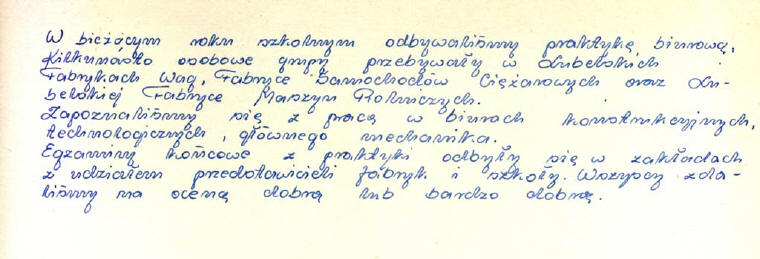 W bieżącym roku szkolnym odbywaliśmy praktykę biurową.
Kilkunasto osobowe grupy przebywały w Lubelskich
Fabrykach Wag, Fabryce Samochodów Ciężarowych oraz Lu-
belskiej Fabryce Maszyn Rolniczych.
Zapoznaliśmy się z pracą w biurach konstrukcyjnych,
technologicznych, głównego mechanika.
Egzaminy końcowe z praktyki odbyły się w zakładach
z udziałem przedstawicieli fabryk i szkoły. Wszyscy zda-
liśmy na ocenę dobrą lub bardzo dobrą.